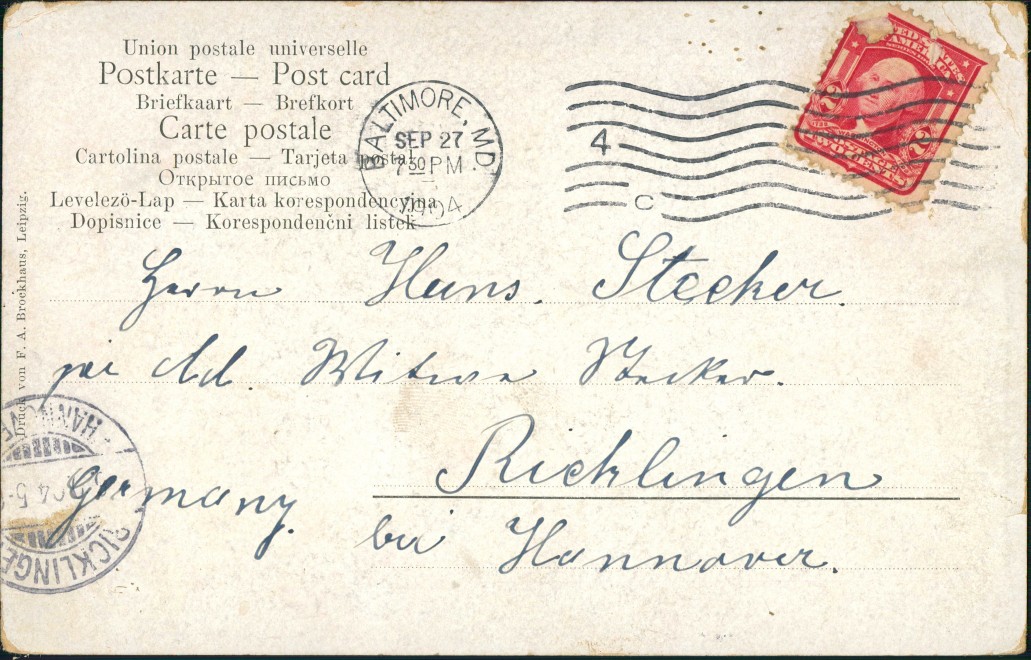 Union postale universelle
Postkarte — Post card
Briefkaart — Brefkort
Carte postale
Cartolina postale — Tarjeta postal
Открытое письмо
Levelezö-Lap — Karta korespondencyjna
Dopisnice — Korespondenčni listek
BALTIMORE, MD.
SEP 27
7 30 PM
1904
4
C
UNITED STATES
OF AMERICA
2 2
TWO CENTS
Herrn Hans. Stecker.
Witwe Stecker.
Ricklingen
bei Hannover.
Germany.
Druck von F. A. Brockhaus, Leipzig.
HANNOVE
04 5-
RICKLINGE